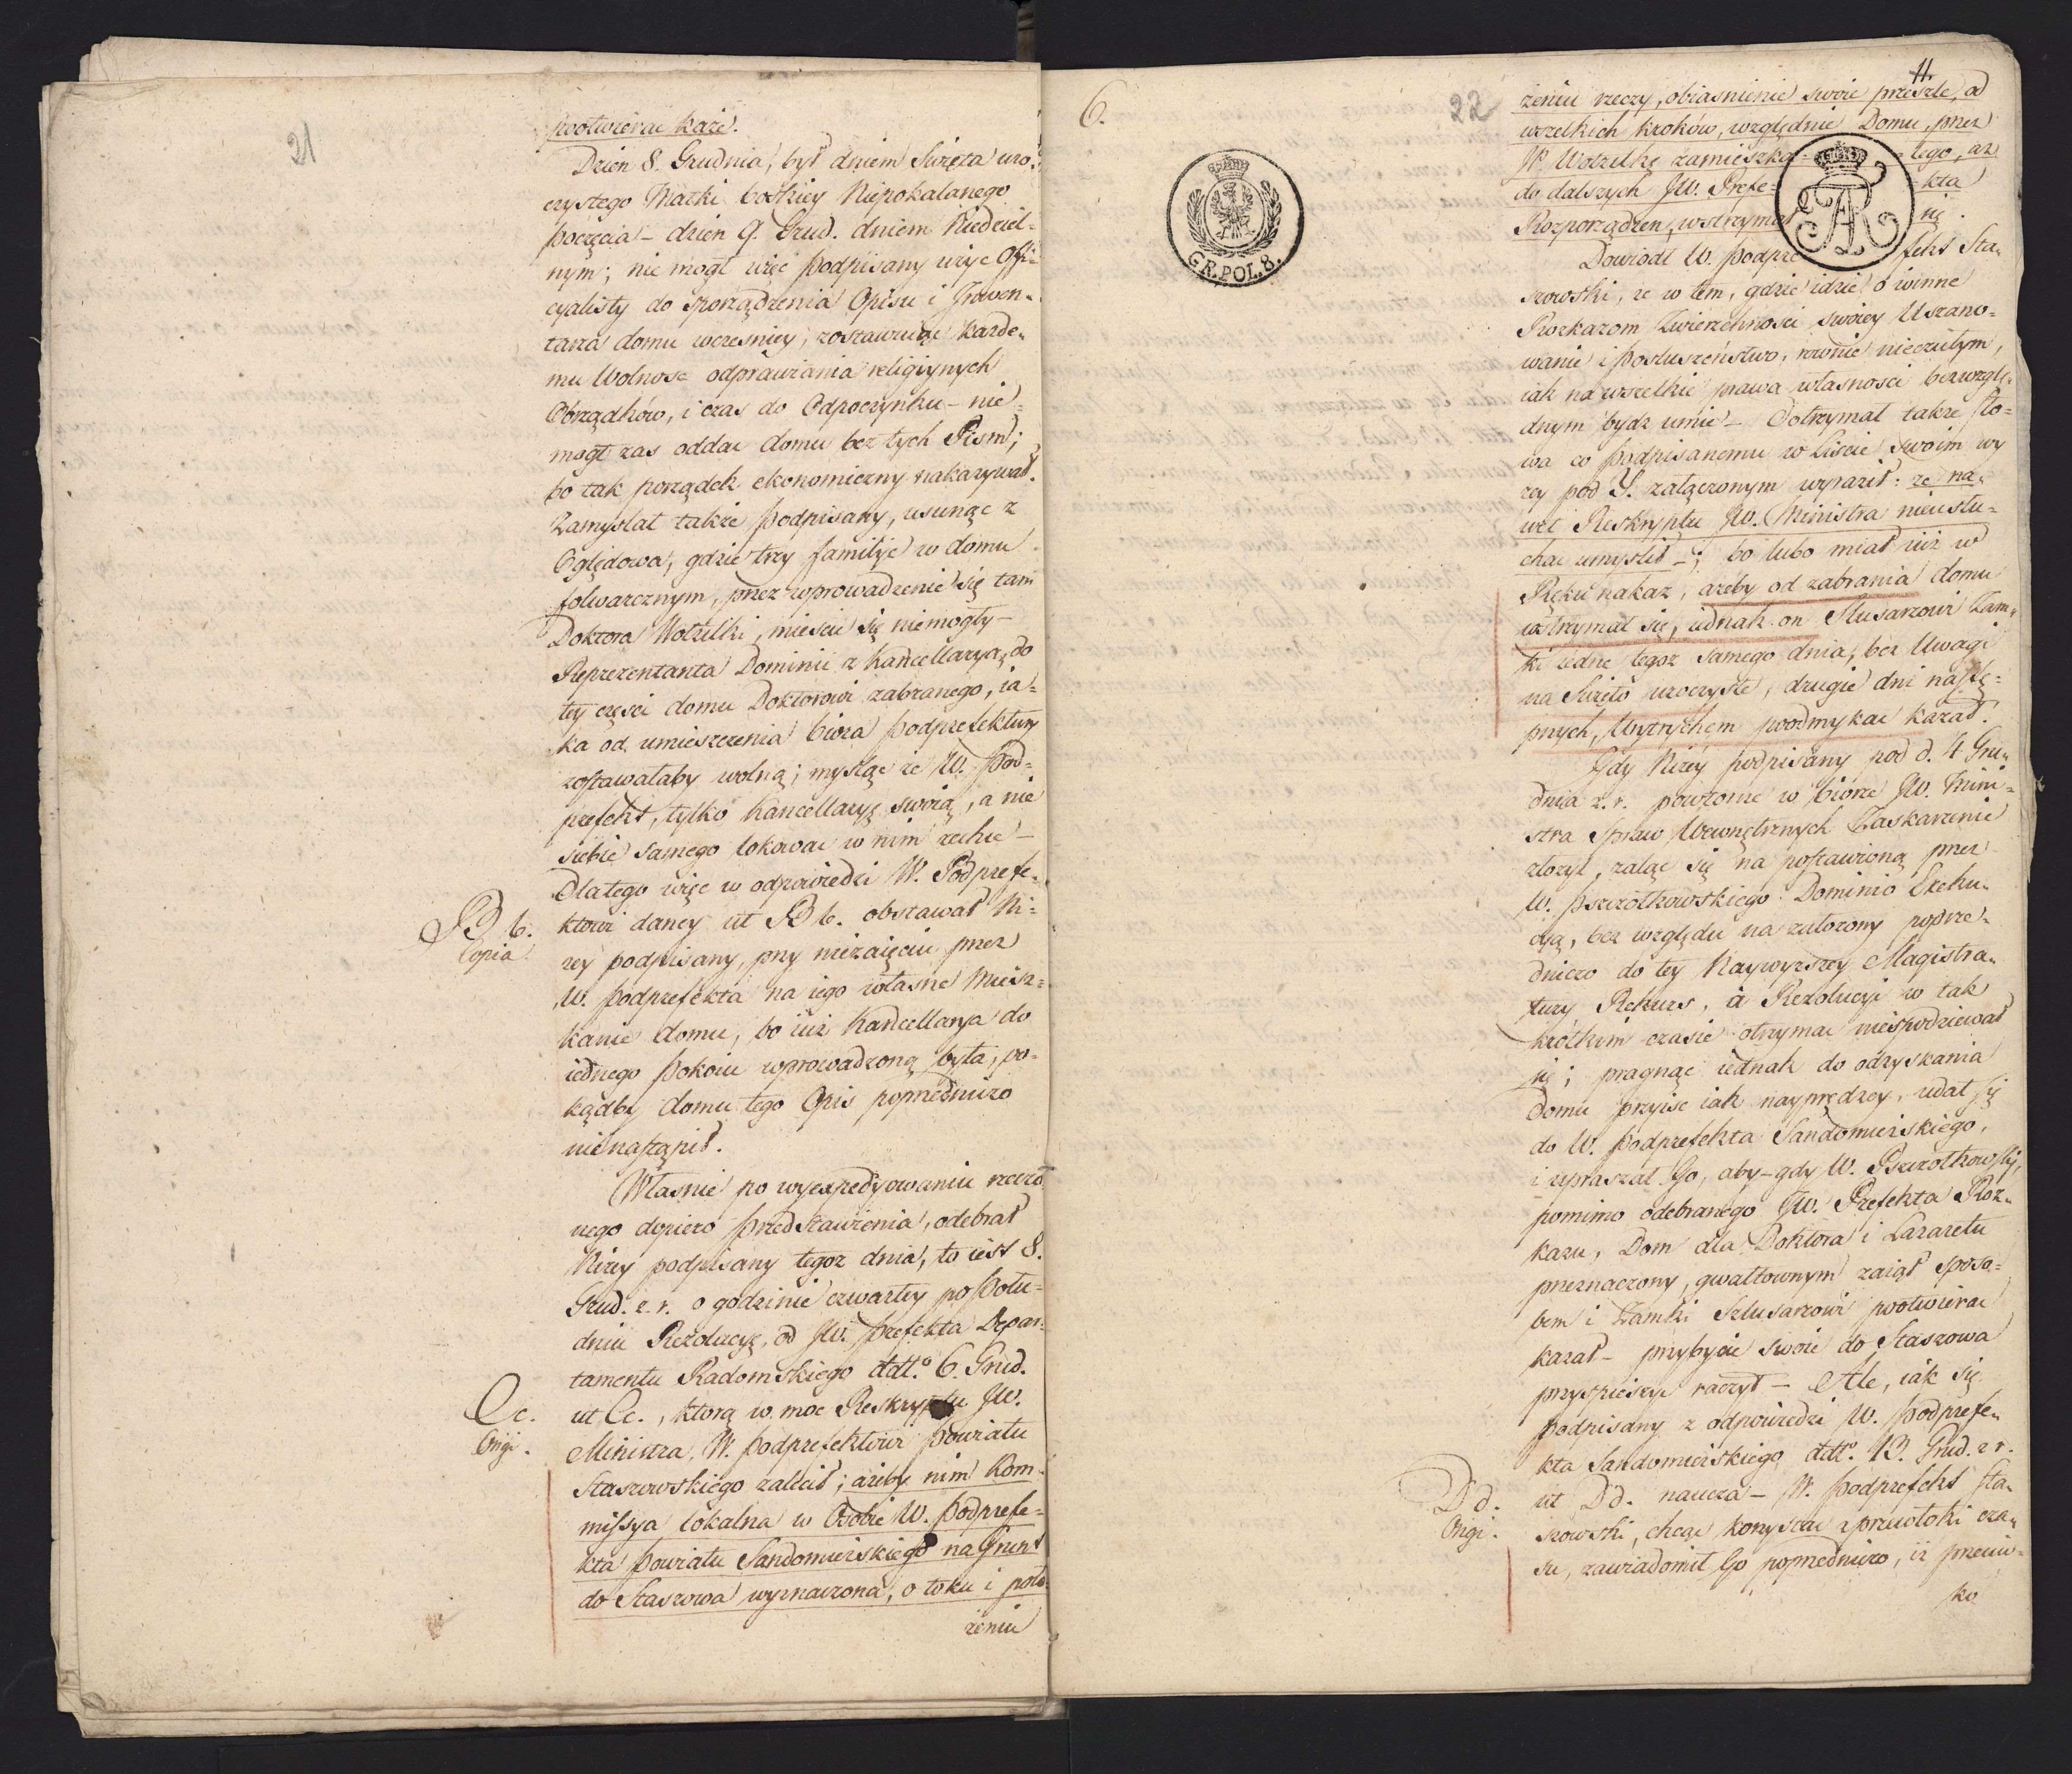 21
pootwierac każe.
Dzien 8. Grudnia, był dniem Swięta uro-
czystego Matki boskiey Niepokalanego
poczęcia – dzien 9. Grud. dniem Niedziel-
nym; nie mogł więc podpisany użyc Offi-
cyalisty do sporządzenia Opisu i Inwen-
tarza domu wczesniey, zostawuiąc każde-
mu Wolnosc odprawiania religiynych
Obrządków, i czas do Odpoczynku – nie-
mogł zas oddac domu bez tych Pism;
bo tak porządek ekonomiczny nakazywał.
Zamyslał także podpisany, usunąc z
Oględowa, gdzie trzy familije w domu
folwarcznym, przez wprowadzenie się tam
Doktora Wotzilki, miescic się niemogły –
Reprezentanta Dominii z Kancellaryą, do
tey częsci domu Doktorowi zabranego, ia-
ka od umieszczenia biora podprefektury
zostawałaby wolną; mysląc że W. Pod-
prefekt, tylko Kancellaryę swoią, a nie
siebie samego lokowac w nim zechce –
Dlatego więc w odpowiedzi W. Podprefe-
B b. ktowi daney ut B b. obstawał Ni-
Copia. żey podpisany, przy niezaięciu przez
W. Podprefekta na iego własne miesz-
kanie domu, bo iuż Kancellarya do
iednego pokoiu wprowadzoną była, po-
kądby domu tego Opis poprzedniczo
nienastąpił.
Własnie po wyexpedyowaniu rzeczo-
nego dopiero przedstawienia, odebrał
Niżey podpisany tegoż dnia, to iest 8.
Grud. z. r. o godzinie czwartey popołu-
dniu Rezolucyę, od JW. Prefekta Depar-
tamentu Radomskiego ddt.o 6. Grud.
Cc. ut Cc., którą w moc Reskryptu JW.
Origi. Ministra, W. Podprefektowi powiatu
Staszowskiego zalecił; ażeby nim Kom-
missya lokalna w Osobie W. Podprefe-
kta powiatu Sandomirskiego na Grunt
do Staszowa wyznaczona, o toku i poło-
żeniu
6.
22
11.
GR. POL. 8.
żeniu rzeczy, obiasnienie swoie przeszle, od
wszelkich kroków, względnie Domu, przez
JP. Wotzilkę zamieszka- łego, aż
do dalszych JW. Prefe- kta
Rozporządzen, wstrzymał się.
Dowiodł W. podpre fekt Sta-
szowski, że w tem, gdzie idzie o winne
Rozkazom Zwierzchnosci swoiey Uszano-
wanie i posłuszeństwo, równie nieczułym,
iak na wszelkie prawa własnosci bezwzglę-
dnym bydz umie – Dotrzymał także sło-
wa co podpisanemu w Liscie swoim wy
zey pod Y. załączonym wyraził: że na-
wet Reskryptu JW. Ministra nieusłu-
chac umyslił –; bo lubo miał iuż w
Ręku nakaz, ażeby od zabrania domu
wstrzymał się, iednak on Slusarzowi Zam-
ki iedne tegoż samego dnia, bez Uwagi
na Swięto uroczyste, drugie dni nastę-
pnych, Wytrychem poodmykac kazał.
Gdy Niżey podpisany pod d. 4 Gru-
dnia z. r. powtórne w biórze JW. Mini-
stra Spraw Wewnętrznych Zaskarżenie
złożył, żaląc się na postawioną przez
W. Pszczółkowskiego Dominio Exeku-
cyą, bez względu na założony poprze-
dniczo do tey Naywyższey Magistra-
tury Rekurs, a Rezolucyi w tak
krótkim czasie otrzymac niespodziewał
się; pragnąc iednak do odzyskania
domu przyisc iak nayprędzey, udał się
do W. Podprefekta Sandomirskiego,
i upraszał Go, aby – gdy W. Pszczółkowski,
pomimo odebranego JW. Prefekta Roz-
kazu, Dom dla Doktora i Lazaretu
przeznaczony, gwałtownym zaiął sposo-
bem i Zamki Szlusarzowi pootwierac
kazał – przybycie swoie do Staszowa
przyspieszyc raczył – Ale, iak się
podpisany z odpowiedzi W. Podprefe-
kta Sandomirskiego ddt.o 13. Grud. z r.
Dd. ut Dd. naucza – W. Podprefekt Sta-
Origi. szowski, chcąc korzystac z przewłoki cza-
su, zawiadomił Go poprzedniczo, iż przeciw-
ko